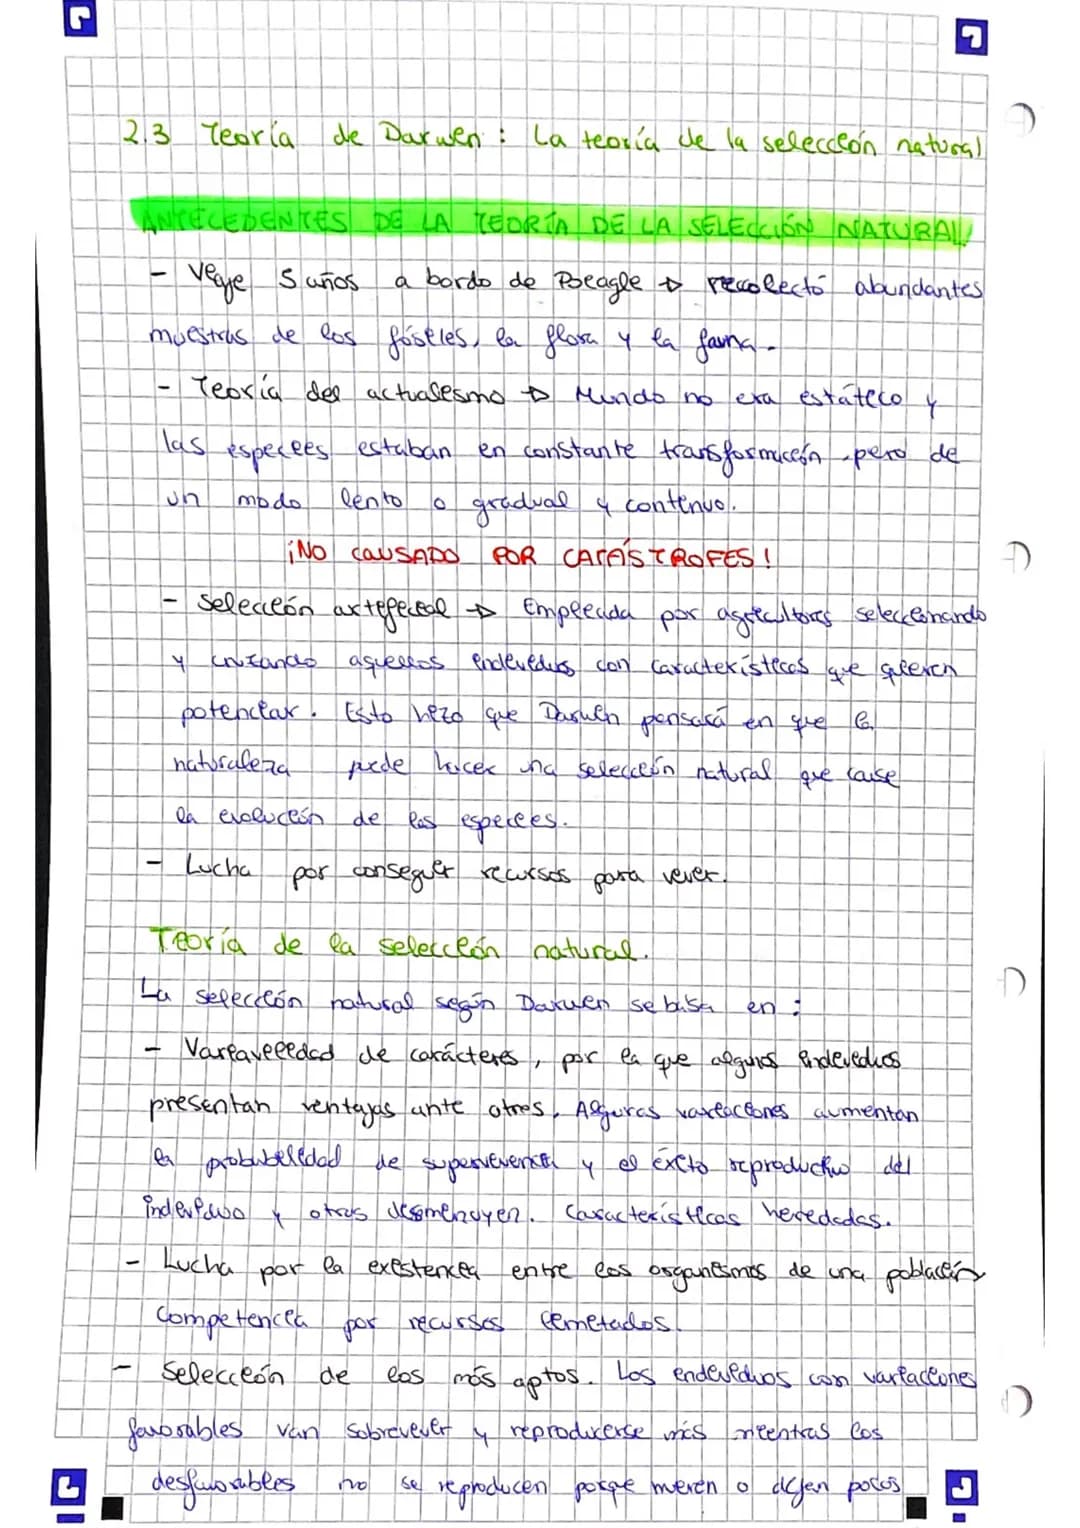 2.3 Teoría de Darwin : La teoría de la selección natural
ANTECEDENTES DE LA TEORÍA DE LA SELECCIÓN NATURAL
- Viaje 5 años a bordo de Beagle → recolectó abundantes
muestras de los fósiles, la flora y la fauna.
- Teoría del actualismo → Mundo no era estático y
las especies estaban en constante transformación pero de
un modo lento o gradual y continuo.
¡NO CAUSADO POR CATÁSTROFES!
- Selección artificial → Empleada por agricultores seleccionando
y cruzando aquellos individuos con características que quieren
potenciar. Esto hizo que Darwin pensará en que la
naturaleza puede hacer una selección natural que cause
la evolución de las especies.
- Lucha por conseguir recursos para vivir.
Teoría de la selección natural.
La selección natural según Darwin se basa en :
- Variavilidad de carácteres, por la que algunos individuos
presentan ventajas ante otros. Algunas variaciones aumentan
la probabilidad de supervivencia y el éxito reproductivo del
individuo y otras disminuyen. Características heredadas.
- Lucha por la existencia entre los organismos de una población
Competencia por recursos limitados.
- Selección de los más aptos. Los individuos con variaciones
favorables van sobrevivir y reproducirse más mientras los
desfavorables no se reproducen porque mueren o dejan pocos